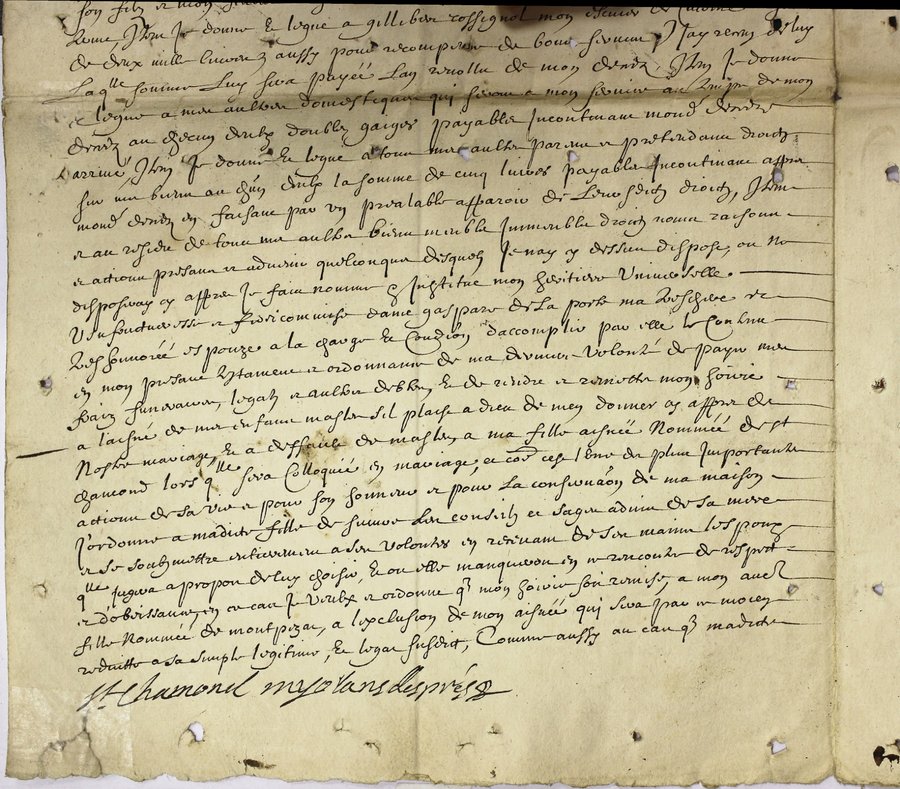 son filz et mon
Item Je donne & legue a gilliber rossignol mon escuier de cuisine
de deux mille livres aussy pour recompense de bons services J'ay receu de luy
Laqlle somme Luy sera payée Lan revollu de mon decez, Item Je donne
& legue a mes aultres domestiques qui seront a mon service au temps de mon
decez au chacun deulx doubles gaiges payables Incontinant mond decedz
arrivé, Item Je donne & legue a tous mes aultres parens et pretendans droictz
sur mes biens au chun deulx la somme de cinq livres payables Incontinant apprs
mond decez en faisant par un prealable apparoir de Leursdictz droictz, Item
et au residu de tous mes aultres biens meubles Immeubles droictz noms raisons
et actions presans et advenir quelconques desquelz Je nay cy dessus dispose, ou ne
disposeray cy appres Je fais nomme & Institue mon heritiere Universelle
Usufructueresse et fideicommise dame gaspare de La porte ma tres chere et
tres honnorée espouze a la charge & Condition d'accomplir par elle le Contenu
en mon presant testament et ordonnance de ma derniere volonté de payer mes
fraiz funeraires, legatz et aultres debtes, & de rendre et remettre mon hoirie
a l'aisné de mes enfans masles sil plaist a dieu de men donner cy appres de
Nostre mariage, & a deffault de masles, a ma fille aisnée Nommée de st
chamond lors qlle sera Colloquée en mariage, et coe cest l'une des plus Importantes
actions de sa vie et pour son honneur et pour La conservaon de ma maison
J'ordonne a madicte fille de suivre les conseilz et sages advis de sa mere
et se soubzmettre entierement a ses volontes en recevant de ses mains les poux
qlle jugera a propos de luy choisir, & ou elle manqueroit en ce rencontre de respect
et d'obeissance, en ce cas Je veulx et ordonne q mon hoirie soit remise, a mon autre
fille Nommée de montpezac, a l'exclusion de mon aisnée qui sera par ce moien
reduitte a sa simple legitime, & legat susdict, Comme aussy au cas q madicte
St. Chamond mijolans després